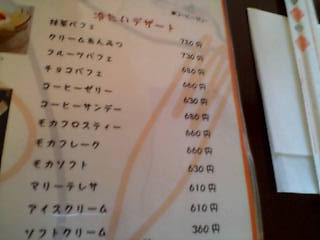 冷たいデザート
抹茶パフェ 730円
クリームあんみつ 730円
フルーツパフェ 680円
チョコパフェ 660円
コーヒーゼリー 630円
コーヒーサンデー 680円
モカフロスティー 660円
モカフレーク 660円
モカソフト 630円
マリーテレサ 610円
アイスクリーム 610円
ソフトクリーム 360円